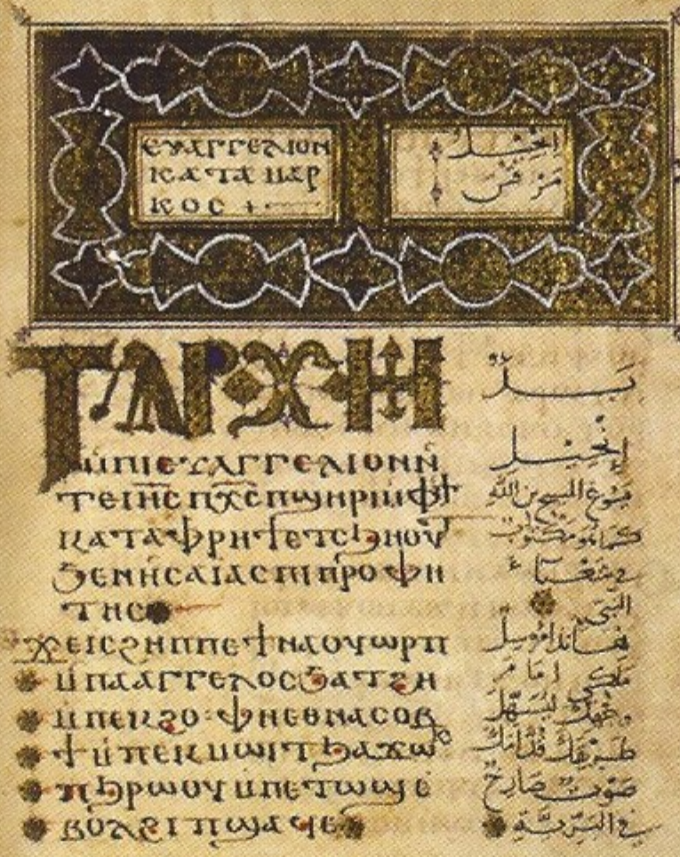 ⲉⲩⲁⲅⲅⲉⲗⲓⲟⲛ
ⲕⲁⲧⲁ ⲙⲁⲣ
ⲕⲟⲥ +
انجيل
مرقس
ⲧⲁⲣⲭⲏ
ⲙ̀ⲡⲓⲉⲩⲁⲅⲅⲉⲗⲓⲟⲛ ⲛ̀
ⲧⲉ ⲓⲏ̅ⲥ̅ ⲡⲭ̅ⲥ̅ ⲡϣⲏⲣⲓ ⲙ̀ⲫϯ
ⲕⲁⲧⲁ ⲫⲣⲏϯ ⲉⲧⲥϧⲏⲟⲩⲧ
ϧⲉⲛ ⲏⲥⲁⲓⲁⲥ ⲡⲓⲡⲣⲟⲫⲏ
ⲧⲏⲥ
ϫⲉ ⲓⲥϩⲏⲡⲡⲉ ϯⲛⲁⲟⲩⲱⲣⲡ
ⲙ̀ⲡⲁⲁⲅⲅⲉⲗⲟⲥ ϧⲁⲧϩⲏ
ⲙ̀ⲡⲉⲕϩⲟ ⲫⲏⲉⲑⲛⲁⲥⲟⲃ
ϯ ⲙ̀ⲡⲉⲕⲙⲱⲓⲧ ϧⲁϫⲱⲕ
ⲡϧⲣⲱⲟⲩ ⲙ̀ⲡⲉⲧⲱϣ ⲉ
ⲃⲟⲗ ϩⲓ ⲡϣⲁϥⲉ
انجيل
يسوع المسيح بن الله
كما هو مكتوب
في شعيا
النبي
هانذا مرسل
ملاكي امام
وجهك ليسهل
طريقك قدامك
صوت صارخ
في البرية